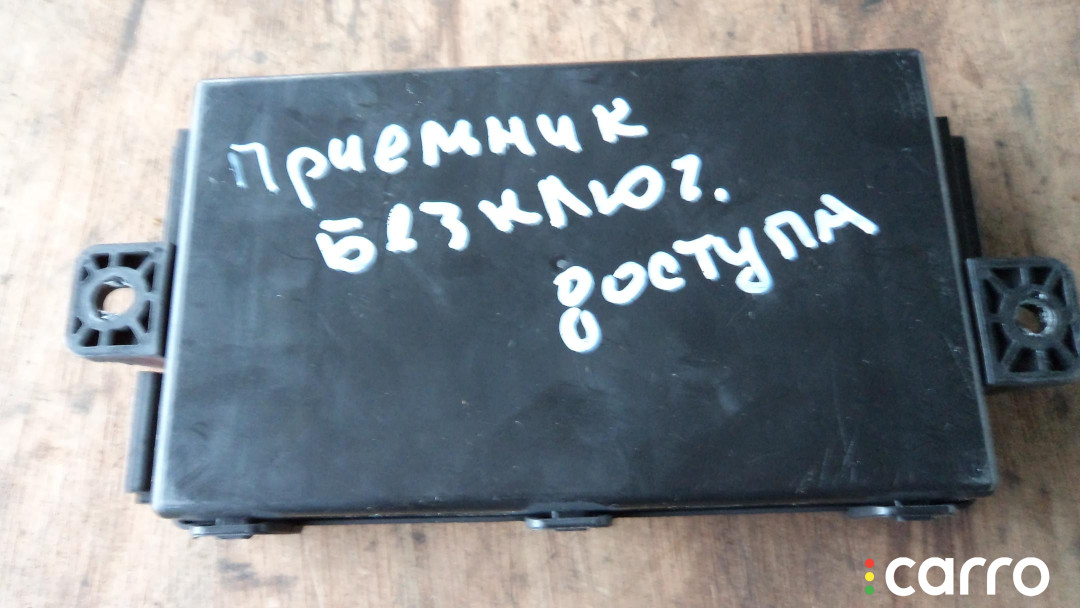 Приемник
Безключ.
доступа
carro